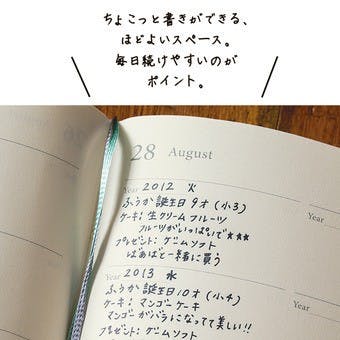 ちょこっと書きができる、
ほどよいスペース。
毎日続けやすいのが
ポイント。
28 August
Year 2012 火
ふうか 誕生日 9才 (小3)
ケーキ: 生クリームフルーツ
フルーツがいっぱいで★★★
プレゼント: ゲームソフト
ばあばと一緒に買う
Year 2013 水
ふうか 誕生日 10才 (小4)
ケーキ: マンゴーケーキ
マンゴーがバラになってて美しい!!
プレゼント: ゲームソフト
Year
Year